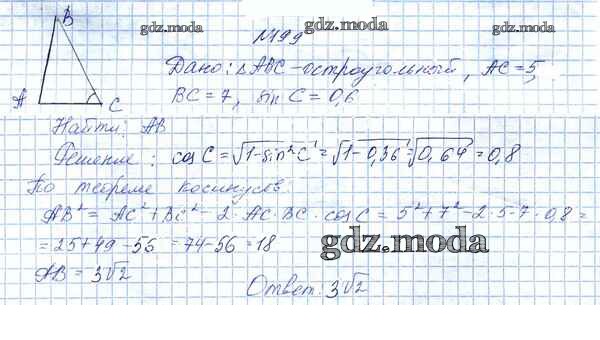 gdz.moza
B
gdz.moza
gdz.moza
№199
Дано: △ABC - остроугольный, AC = 5,
A
C
BC = 7, sin C = 0,6
Найти: AB
Решение: cos C = √1-sin²C = √1-0,36 = √0,64 = 0,8
По теореме косинусов:
AB² = AC² + BC² - 2·AC·BC·cos C = 5² + 7² - 2·5·7·0,8 =
= 25+49-56 = 74-56 = 18
gdz.moza
AB = 3√2
Ответ: 3√2